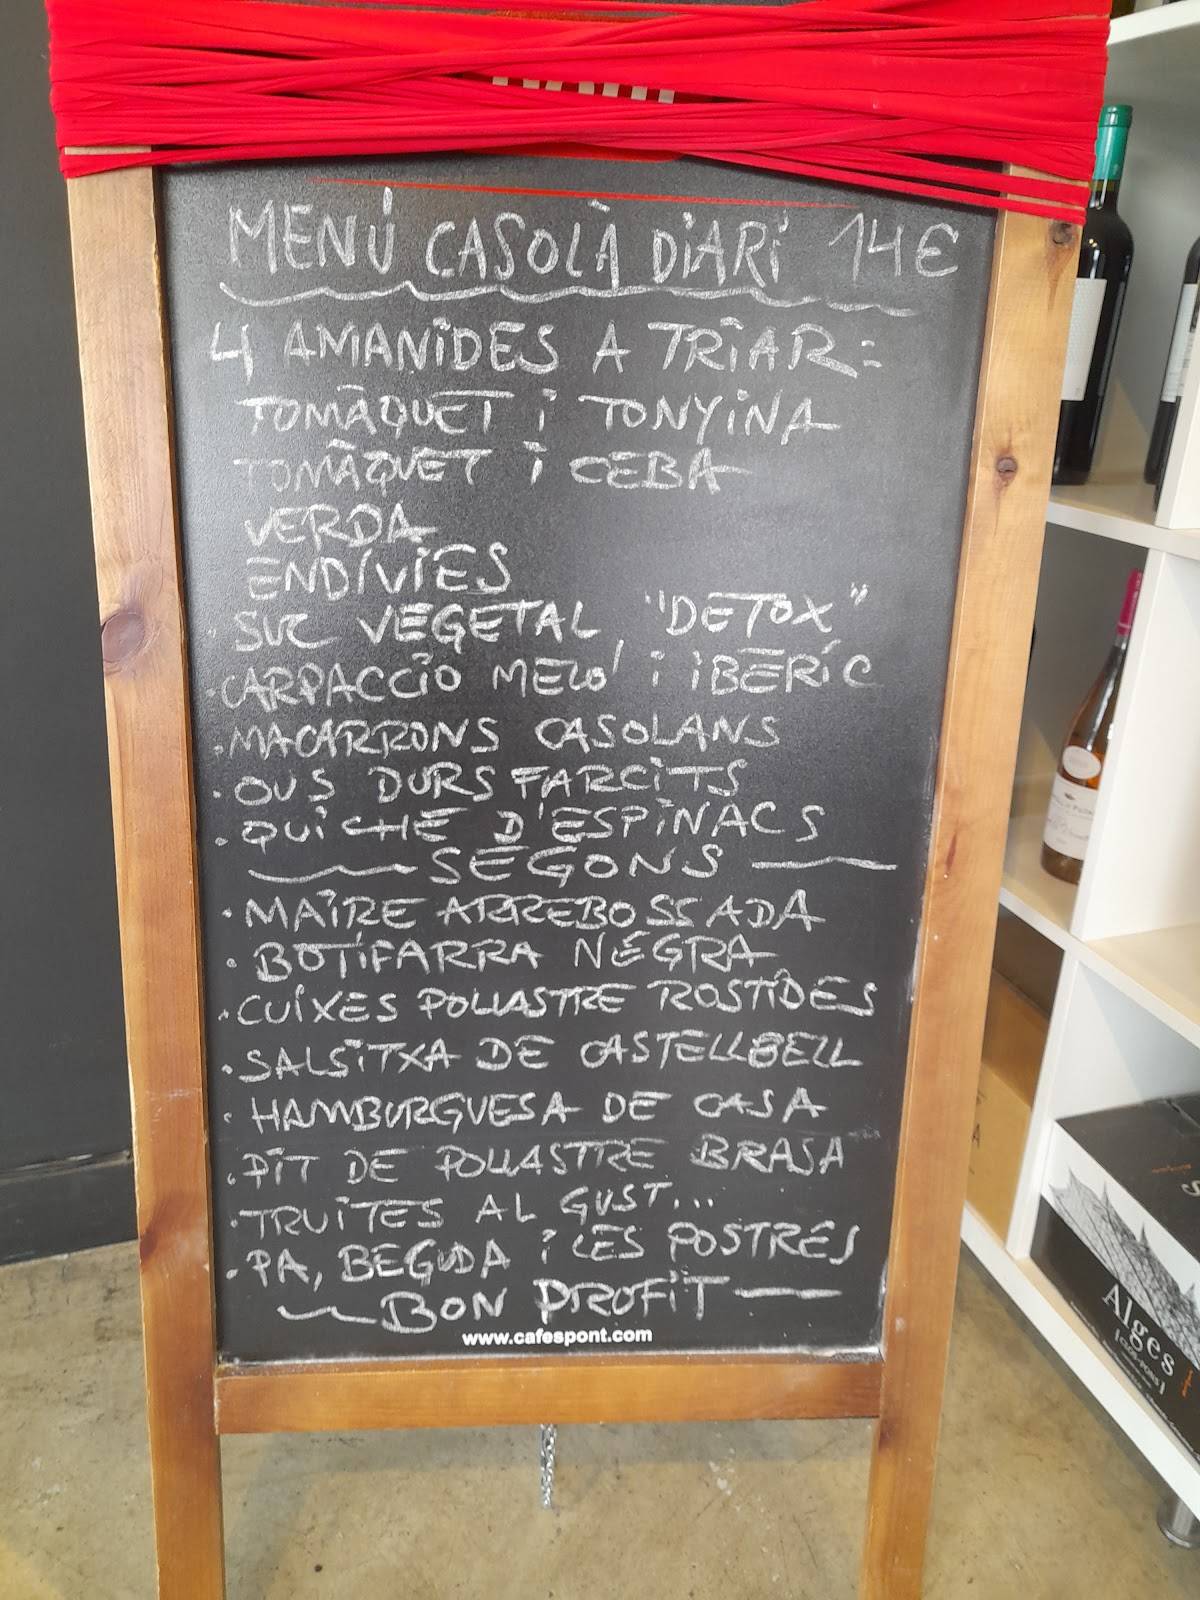 MENÚ CASOLÀ DIARI 14€
4 AMANIDES A TRIAR:
TOMÀQUET I TONYINA
TOMÀQUET I CEBA
VERDA
ENDÍVIES
SUC VEGETAL "DETOX"
·CARPACCIO MELÓ I IBÈRIC
·MACARRONS CASOLANS
·OUS DURS FARCITS
·QUICHE D'ESPINACS
SEGONS
·MAIRE ARREBOSSADA
·BOTIFARRA NEGRA
·CUIXES POLLASTRE ROSTIDES
·SALSITXA DE CASTELLBELL
·HAMBURGUESA DE CASA
·PIT DE POLLASTRE BRASA
·TRUITES AL GUST...
·PA, BEGUDA I LES POSTRES
BON PROFIT
www.cafespont.com
Alges